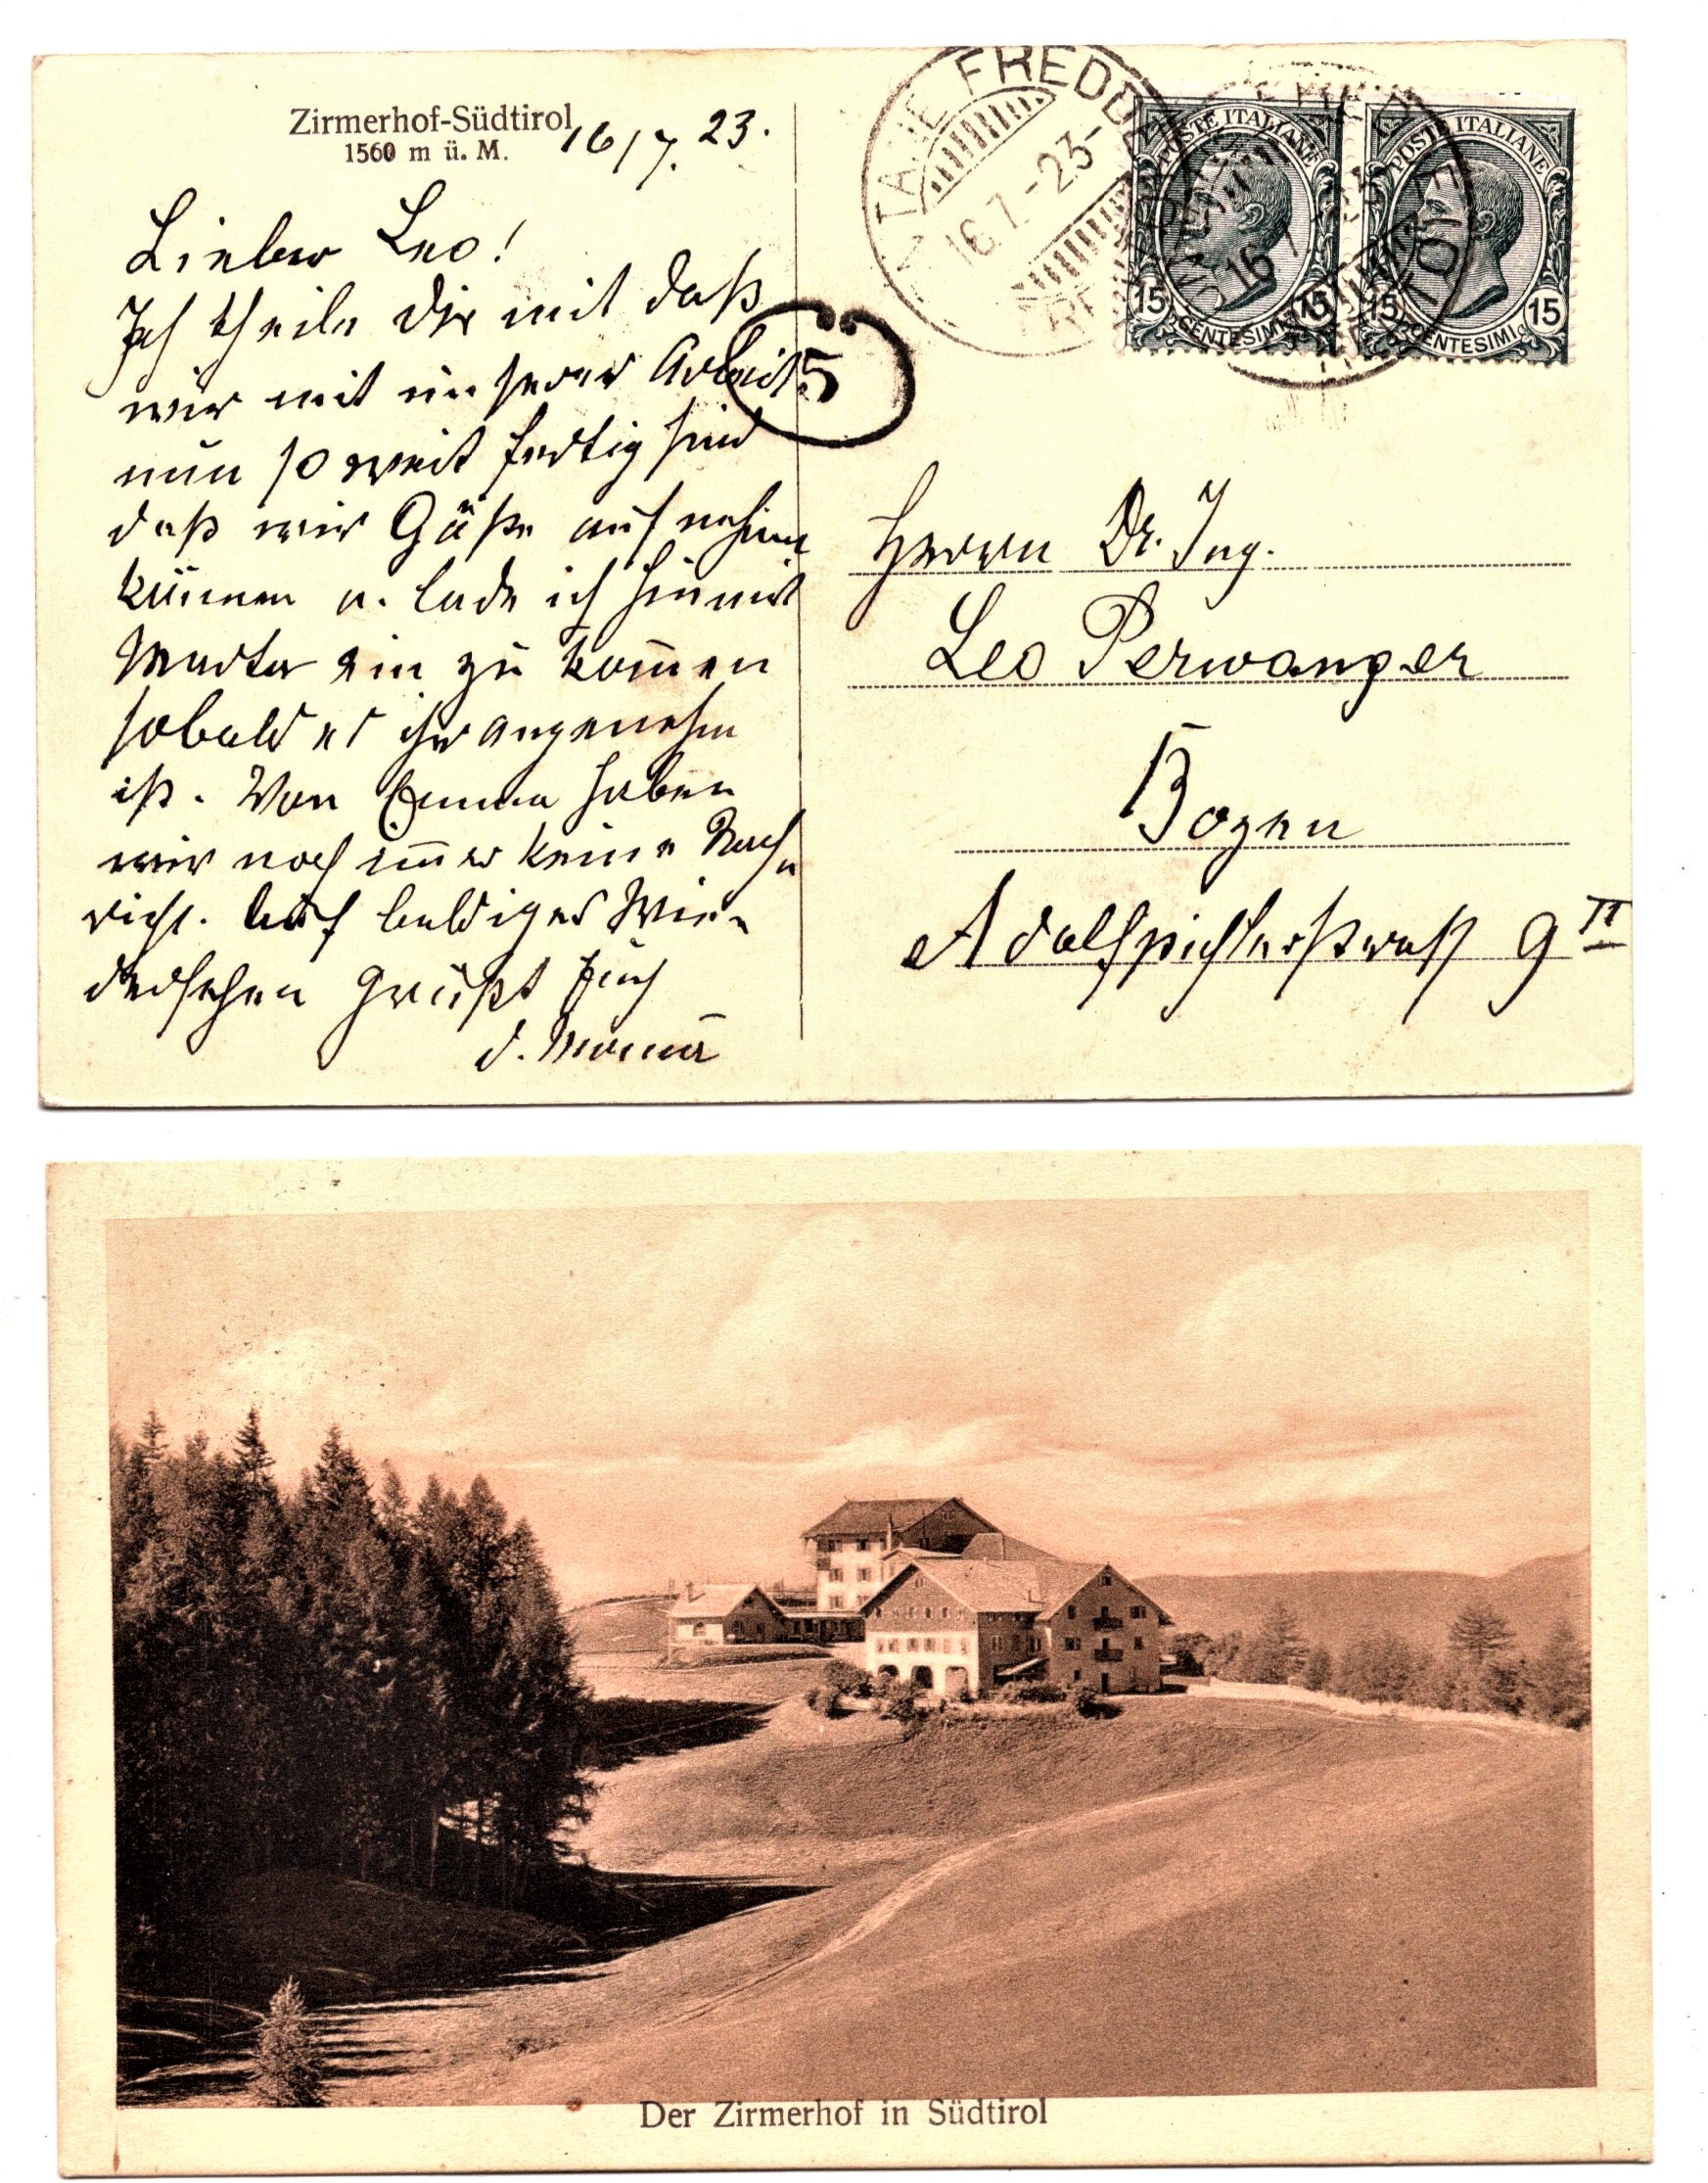 Zirmerhof-Südtirol
1560 m ü. M.
16/7. 23.
Lieber Leo!
Ich theile Dir mit daß
wir mit unserer Arbeit
nun so weit fertig sind
daß wir Gäste aufnehmen
können u. lade ich hiemit
Marta ein zu kom̅en
sobald es ihr angenehm
ist. Von Emma haben
wir noch im̅er keine Nach-
richt. Auf baldiges Wie-
dersehen grüßt Euch
d. Mama
5
FREDDE
16.7.-23-
POSTE ITALIANE
15 CENTESIMI 15
POSTE ITALIANE
15 CENTESIMI 15
Herrn Dr. Ing.
Leo Perwanger
Bozen
Adolfpichlerstrasse 9 II
Der Zirmerhof in Südtirol